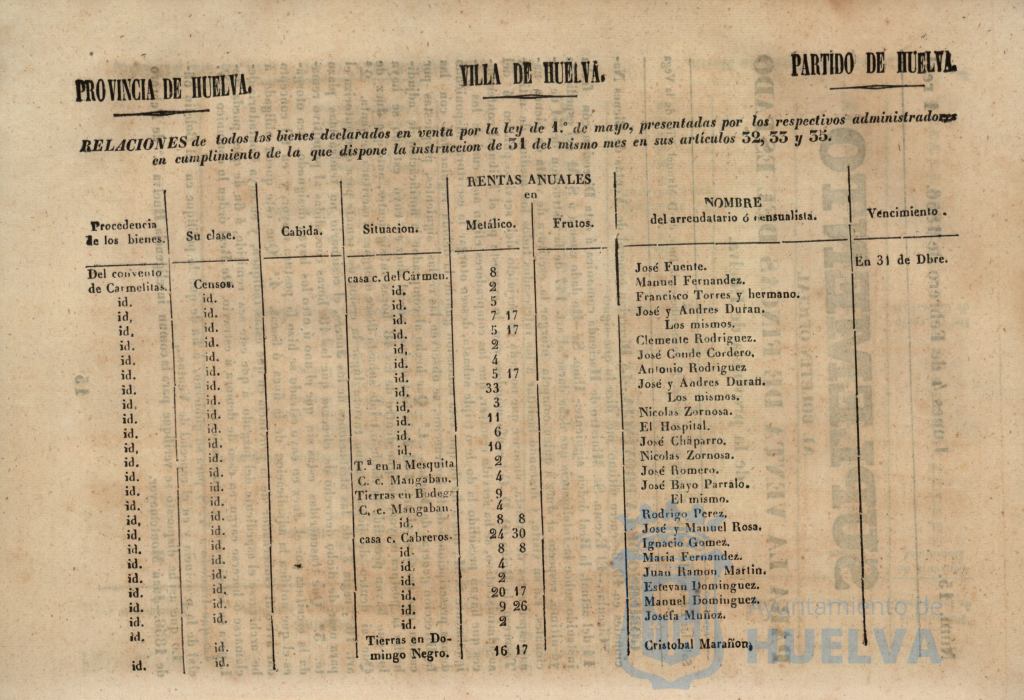 PROVINCIA DE HUELVA. VILLA DE HUELVA. PARTIDO DE HUELVA.
RELACIONES de todos los bienes declarados en venta por la ley de 1.º de mayo, presentadas por los respectivos administradores
en cumplimiento de la que dispone la instruccion de 31 del mismo mes en sus artículos 32, 33 y 35.
RENTAS ANUALES
en
Procedencia de los bienes. Su clase. Cabida. Situacion. Metálico. Frutos. NOMBRE del arrendatario ó censualista. Vencimiento.
Del convento
de Carmelitas. Censos. casa c. del Cármen. 8 José Fuente. En 31 de Dbre.
id. id. id. 2 Manuel Fernandez.
id. id. id. 5 Francisco Torres y hermano.
id. id. id. 7 17 José y Andres Duran.
id. id. id. 5 17 Los mismos.
id. id. id. 2 Clemente Rodriguez.
id. id. id. 4 José Conde Cordero.
id. id. id. 5 17 Antonio Rodriguez
id. id. id. 33 José y Andres Duran.
id. id. id. 3 Los mismos.
id. id. id. 11 Nicolas Zornosa.
id. id. id. 6 El Hospital.
id. id. id. 10 José Chaparro.
id. id. T.ª en la Mesquita 2 Nicolas Zornosa.
id. id. C. c. Mangaban. 4 José Romero.
id. id. Tierras en Bodeg 9 José Bayo Parralo.
id. id. C. c. Mangaban. 4 El mismo.
id. id. id. 8 8 Rodrigo Perez.
id. id. casa c. Cabreros. 24 30 José y Manuel Rosa.
id. id. id. 8 8 Ignacio Gomez.
id. id. id. 4 Maria Fernandez.
id. id. id. 2 Juan Ramon Martin.
id. id. id. 20 17 Estevan Dominguez.
id. id. id. 9 26 Manuel Dominguez.
id. id. id. 2 Josefa Muñoz.
Tierras en Do-
id. id. mingo Negro. 16 17 Cristobal Marañon.
Ayuntamiento de
HUELVA